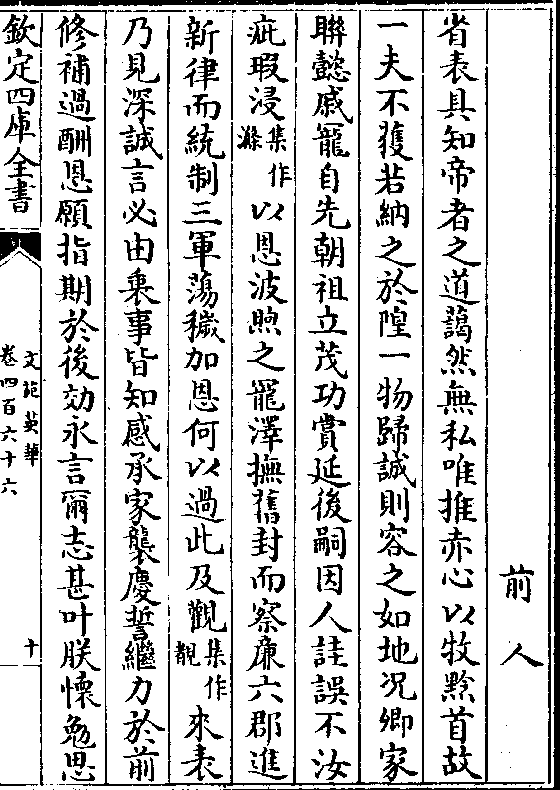 前人
省表具知帝者之道藹然無私唯推赤心以牧黔首故
一夫不獲若納之於隍一物歸誠則容之如地况卿家
聨懿戚寵自先朝祖立茂功賞延後嗣因人詿誤不汝
疵瑕浸集作滌以恩波煦之寵澤撫舊封而察亷六郡進
新律而統制三軍蕩穢加恩何以過此及觀集作覩來表
乃見深誠言必由衷事皆知感承家襲慶誓繼力於前
修補過酬恩願指期於後効永言爾志甚叶朕懷勉思
欽定四庫全書
文苑英華
卷四百六十六
十